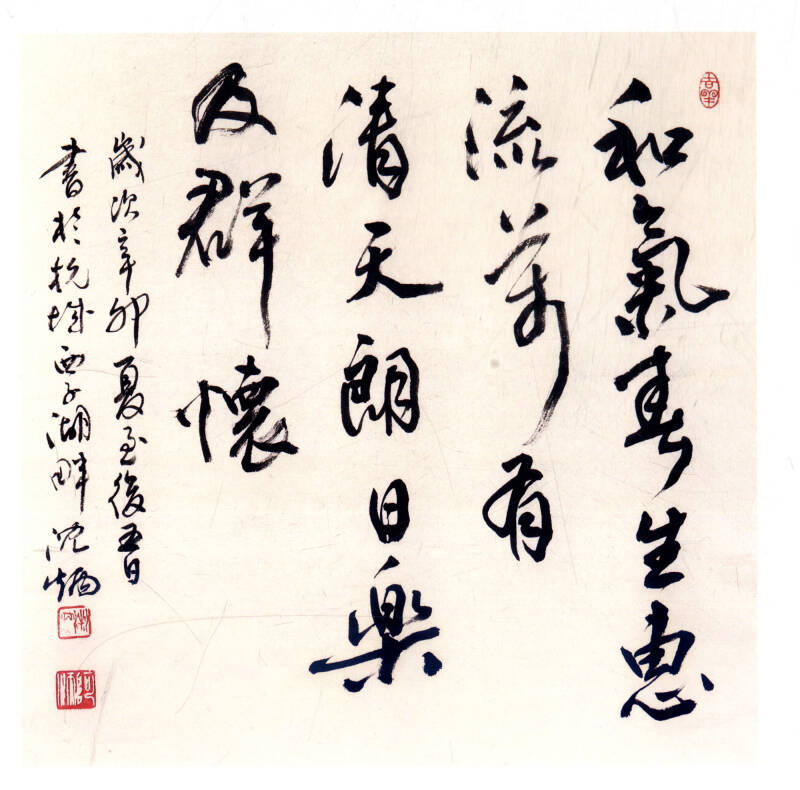 和氣春生惠
流萬有
清天朗日樂
及群懷
歲次辛卯夏至後五日
書於杭城西子湖畔沈炳